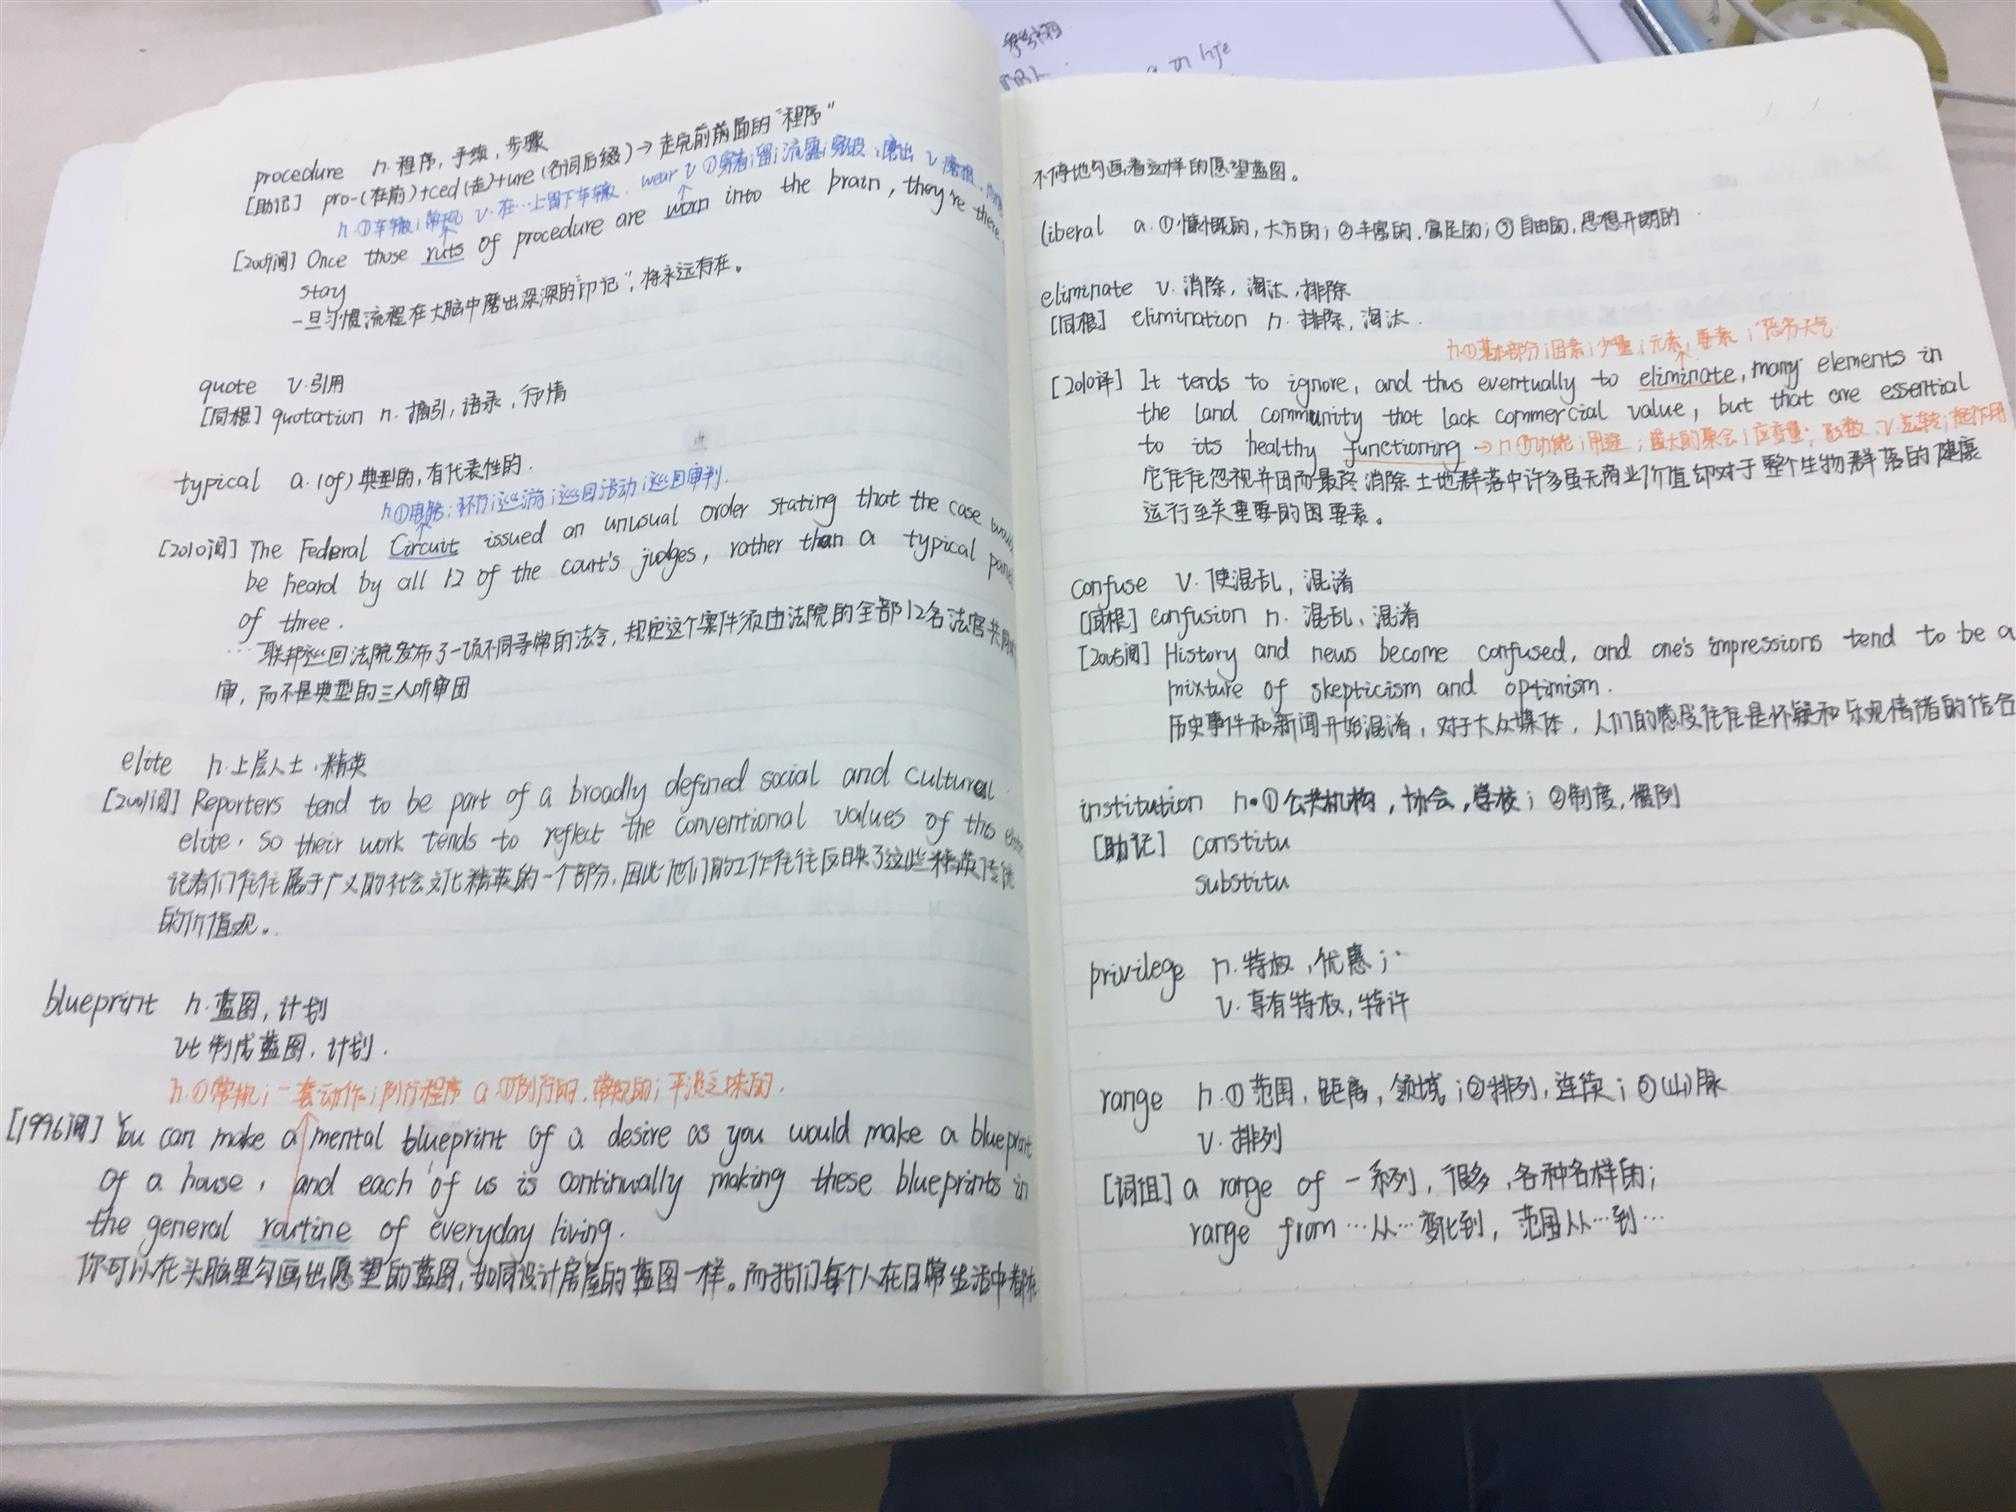 procedure n. 程序, 手续, 步骤
[助记] pro-(在前)+ced(走)+ure(名词后缀)→走完前面的"程序"
n.①车辙;常规 v.在…上留下车辙. wear v.①穿着;留;流露;磨出
[2009阅] Once those ruts of procedure are worn into the brain, they're there
stay
一旦习惯流程在大脑中磨出深深的"印记", 将永远存在。
quote v.引用
[同根] quotation n. 摘引, 语录, 行情
typical a.(of)典型的, 有代表性的.
n.①电路;环行;巡游;巡回活动;巡回审判.
[2010阅] The Federal Circuit issued an unusual order stating that the case would
be heard by all 12 of the court's judges, rather than a typical panel
of three.
…联邦巡回法院发布了一项不同寻常的法令, 规定这个案件须由法院的全部12名法官共同
审, 而不是典型的三人听审团
elite n.上层人士.精英
Reporters tend to be part of a broadly defined social and cultural
elite, so their work tends to reflect the conventional values of this
记者们往往属于广义的社会文化精英的一个部分, 因此他们的工作往往反映了这些精英
的价值观。
blueprint n.蓝图, 计划
vt 制成蓝图, 计划.
n.①常规;一套动作;例行程序 a.①例行的, 常规的;平淡乏味的.
[1996阅] You can make a mental blueprint of a desire as you would make a blueprint
of a house, and each of us is continually making these blueprints in
the general routine of everyday living.
你可以在头脑里勾画出愿望的蓝图, 如同设计房屋的蓝图一样。而我们每个人在日常生活中都在
a m life
不停地勾画着这样的愿望蓝图。
liberal a.①慷慨的, 大方的;②丰富的, 富足的;③自由的, 思想开明的
eliminate v. 消除, 淘汰, 排除
[同根] elimination n. 排除, 淘汰.
n.①基本部分;因素;少量;元素;要素;恶劣天气
[2010译] It tends to ignore, and thus eventually to eliminate, many elements in
the land community that lack commercial value, but that are essential
to its healthy functioning → n.①功能;用途;盛大的聚会;应变量;函数. v.运转;起作用
它往往忽视并因而最终消除土地群落中许多虽无商业价值却对于整个生物群落的健康
运行至关重要的因要素。
confuse v. 使混乱, 混淆
[同根] confusion n. 混乱, 混淆
[2005阅] History and news become confused, and one's impressions tend to be a
mixture of skepticism and optimism.
历史事件和新闻开始混淆, 对于大众媒体, 人们的态度往往是怀疑和乐观情绪的结合
institution n.①公共机构, 协会, 学校;②制度, 惯例
[助记] constitu
substitu
privilege n.特权, 优惠;
v.享有特权, 特许
range n.①范围, 距离, 领域;②排列, 连续;③(山)脉
v. 排列
[词组] a range of 一系列, 很多, 各种各样的;
range from …从…变化到, 范围从…到…